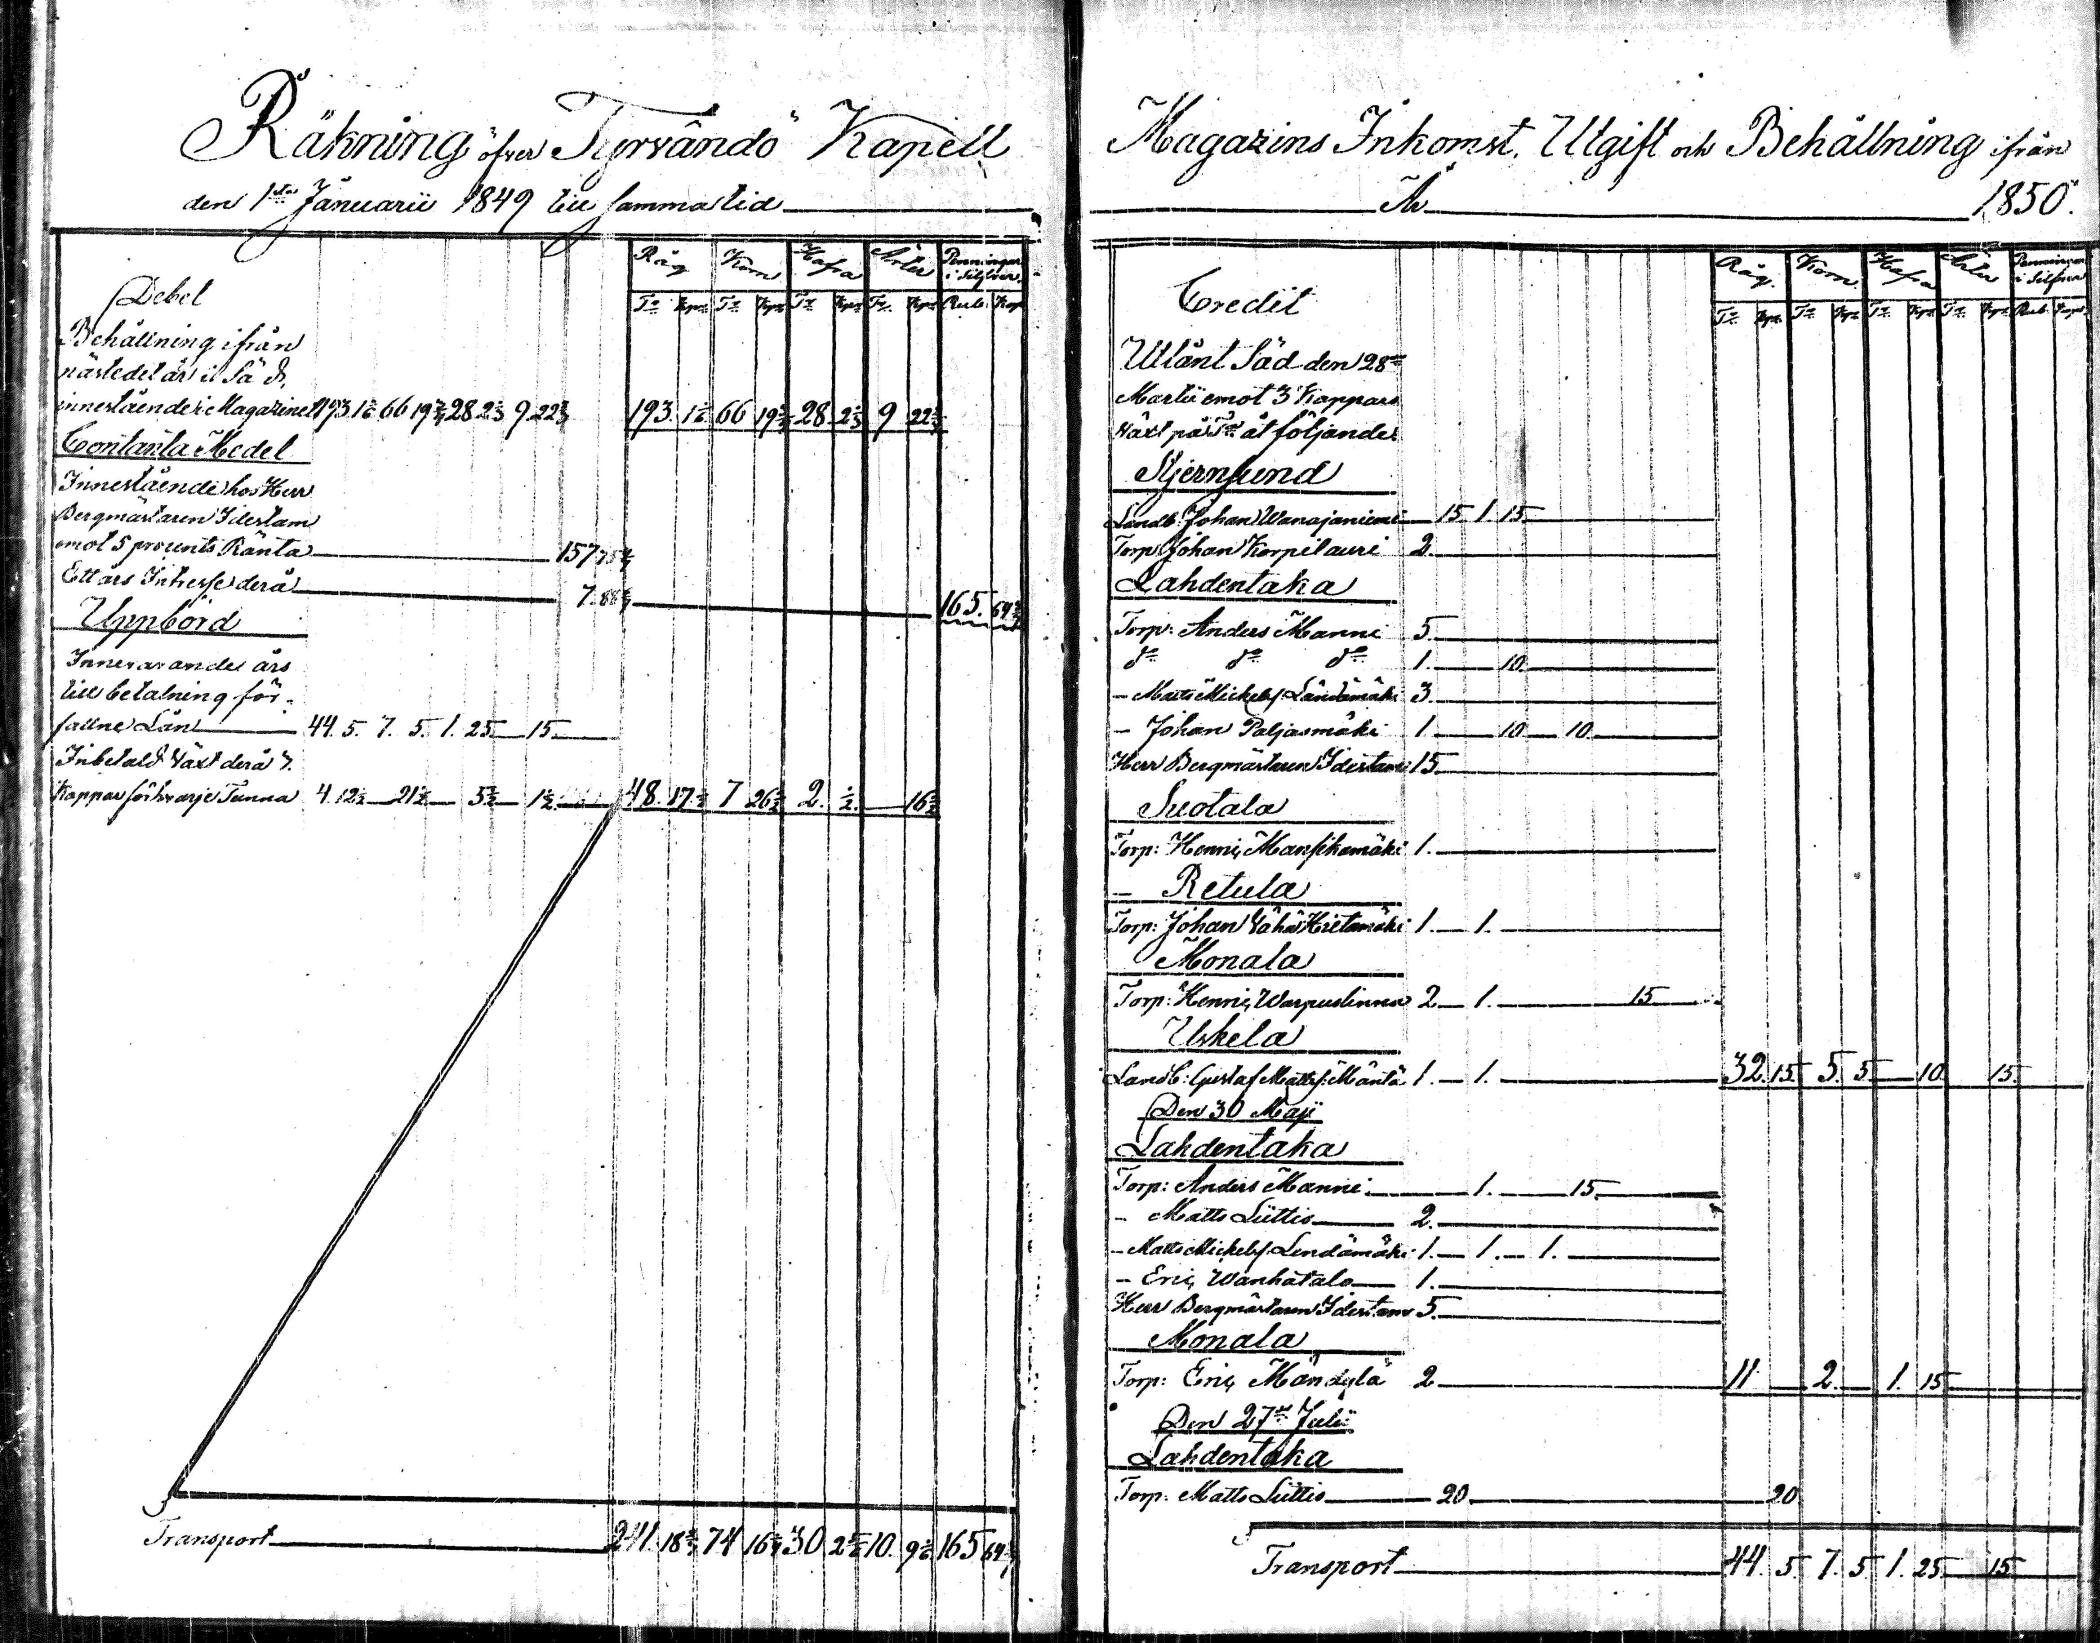 Räkning öfver Tyrvändö Kapell
den 1sta Januarii 1849 till samma tid
Råg Korn Hafra Ärter Penningar i Silfver
Tr Kpr Tr Kpr Tr Kpr Tr Kpr Rub. Kop
Debet
Behållning ifrån
nästedet år i Säd,
innestående i Magazinet 193 66 28 9 193. 66 28 9
Contanta Medel
Innestående hos Herr
Bergmästaren Idestam
emot 5 procents Ränta 157
Ett års Intresse derå 7. 88 165.
Uppbörd
Innevarande års
till betalning för-
fallne Lån 44. 5. 7. 5. 1. 25 15
Inbetald Växt derå 3.
Kappar för hvarje Tunna 4. 12½ 21½ 48. 17 7 26 2. 16
Transport 241. 18 74 16 30 10. 9 165
Magazins Inkomst, Utgift och Behållning ifrån
År 1850.
Råg. Korn. Hafra Ärter Penningar i Silfver
Tr Kpr Tr Kpr Tr Kpr Tr Kpr Rub. Kop
Credit
Utlånt Säd den 28de
Martii emot 3 Kappars
Växt på Tr åt följande
Stjernsund
Landb: Johan Wanajaniemi 15. 1. 15
Torp: Johan Korpilauri 2.
Lahdentaka
Torp: Anders Manni 5.
do do do 1. 10.
– Matts Mickelss. Lendämäki 3.
– Johan Paljasmäki 1. 10 10
Herr Bergmästaren Idestam 15.
Suotala
Torp: Henric Mansikamäki 1.
– Retula
Torp: Johan Vähä Hietamäki 1. 1.
Monala
Torp: Henric Warpuslinna 2 1. 15
Uskela
Landb: Gustaf Mattss. Mäntä 1. 1. 32. 15. 5. 5. 10. 15.
Den 30 Maji
Lahdentaka
Torp: Anders Manni 1. 15.
– Matts Liittis 2.
– Matts Mickelss. Lendämäki 1. 1. 1.
– Eric Wanhatalo 1.
Herr Bergmästaren Idestam 5.
Monala
Torp: Eric Mändylä 2 11 2. 1. 15
Den 27de Julii
Lahdentaka
Torp: Matts Liittis 20 20
Transport 44. 5. 7. 5. 1. 25 15